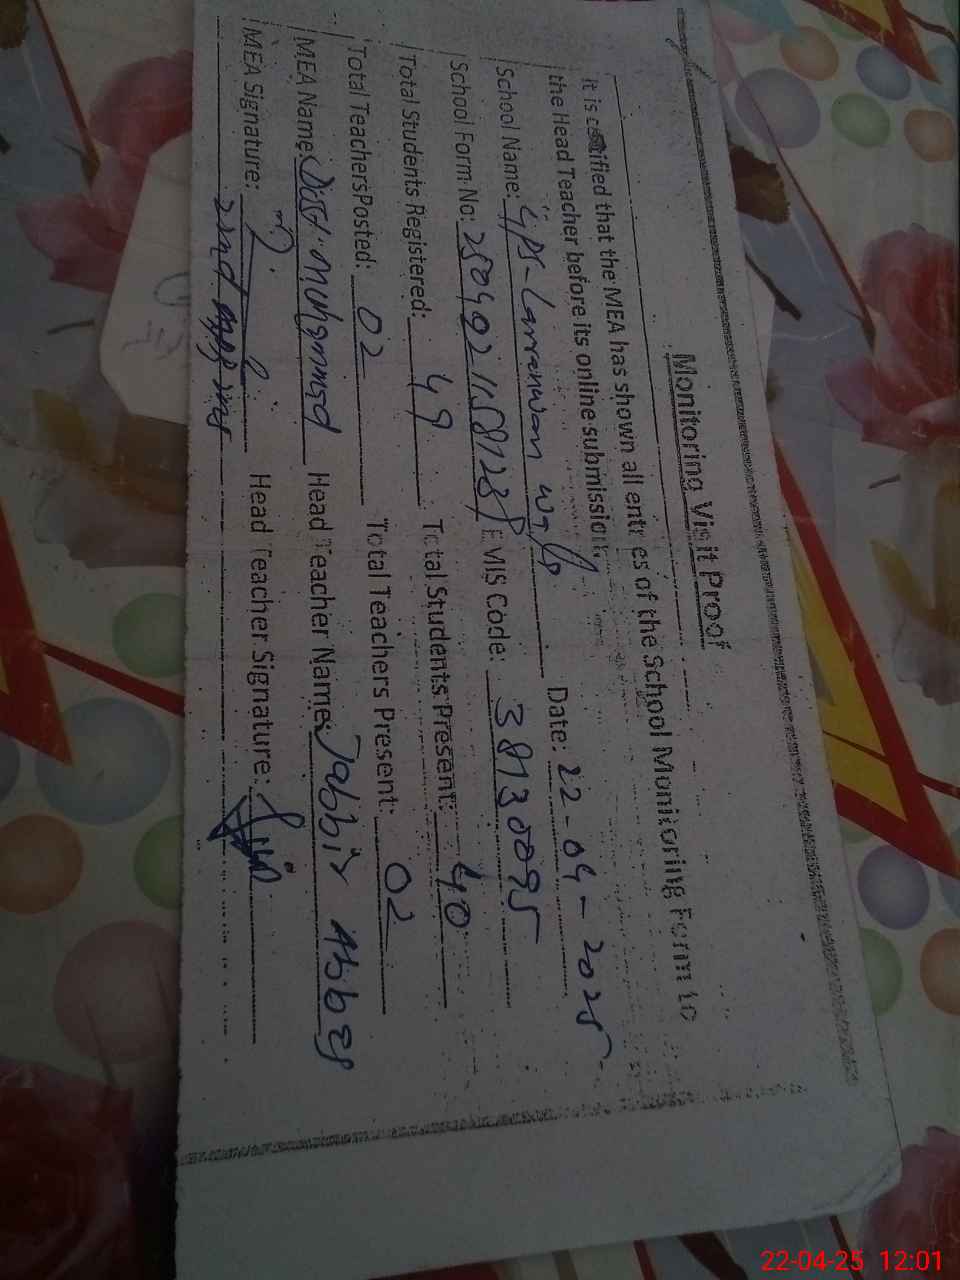 Monitoring Visit Proof
It is certified that the MEA has shown all entries of the School Monitoring Form to
the Head Teacher before its online submission.
School Name: GPS-Larrenwan Date: 22-04-2025
School Form No: EMIS Code: 38130095
Total Students Registered: 49 Total Students Present: 40
Total Teachers Posted: 02 Total Teachers Present: 02
MEA Name: Dost Muhammad Head Teacher Name: Jabbir Abbas
MEA Signature: Head Teacher Signature:
22-04-25 12:01